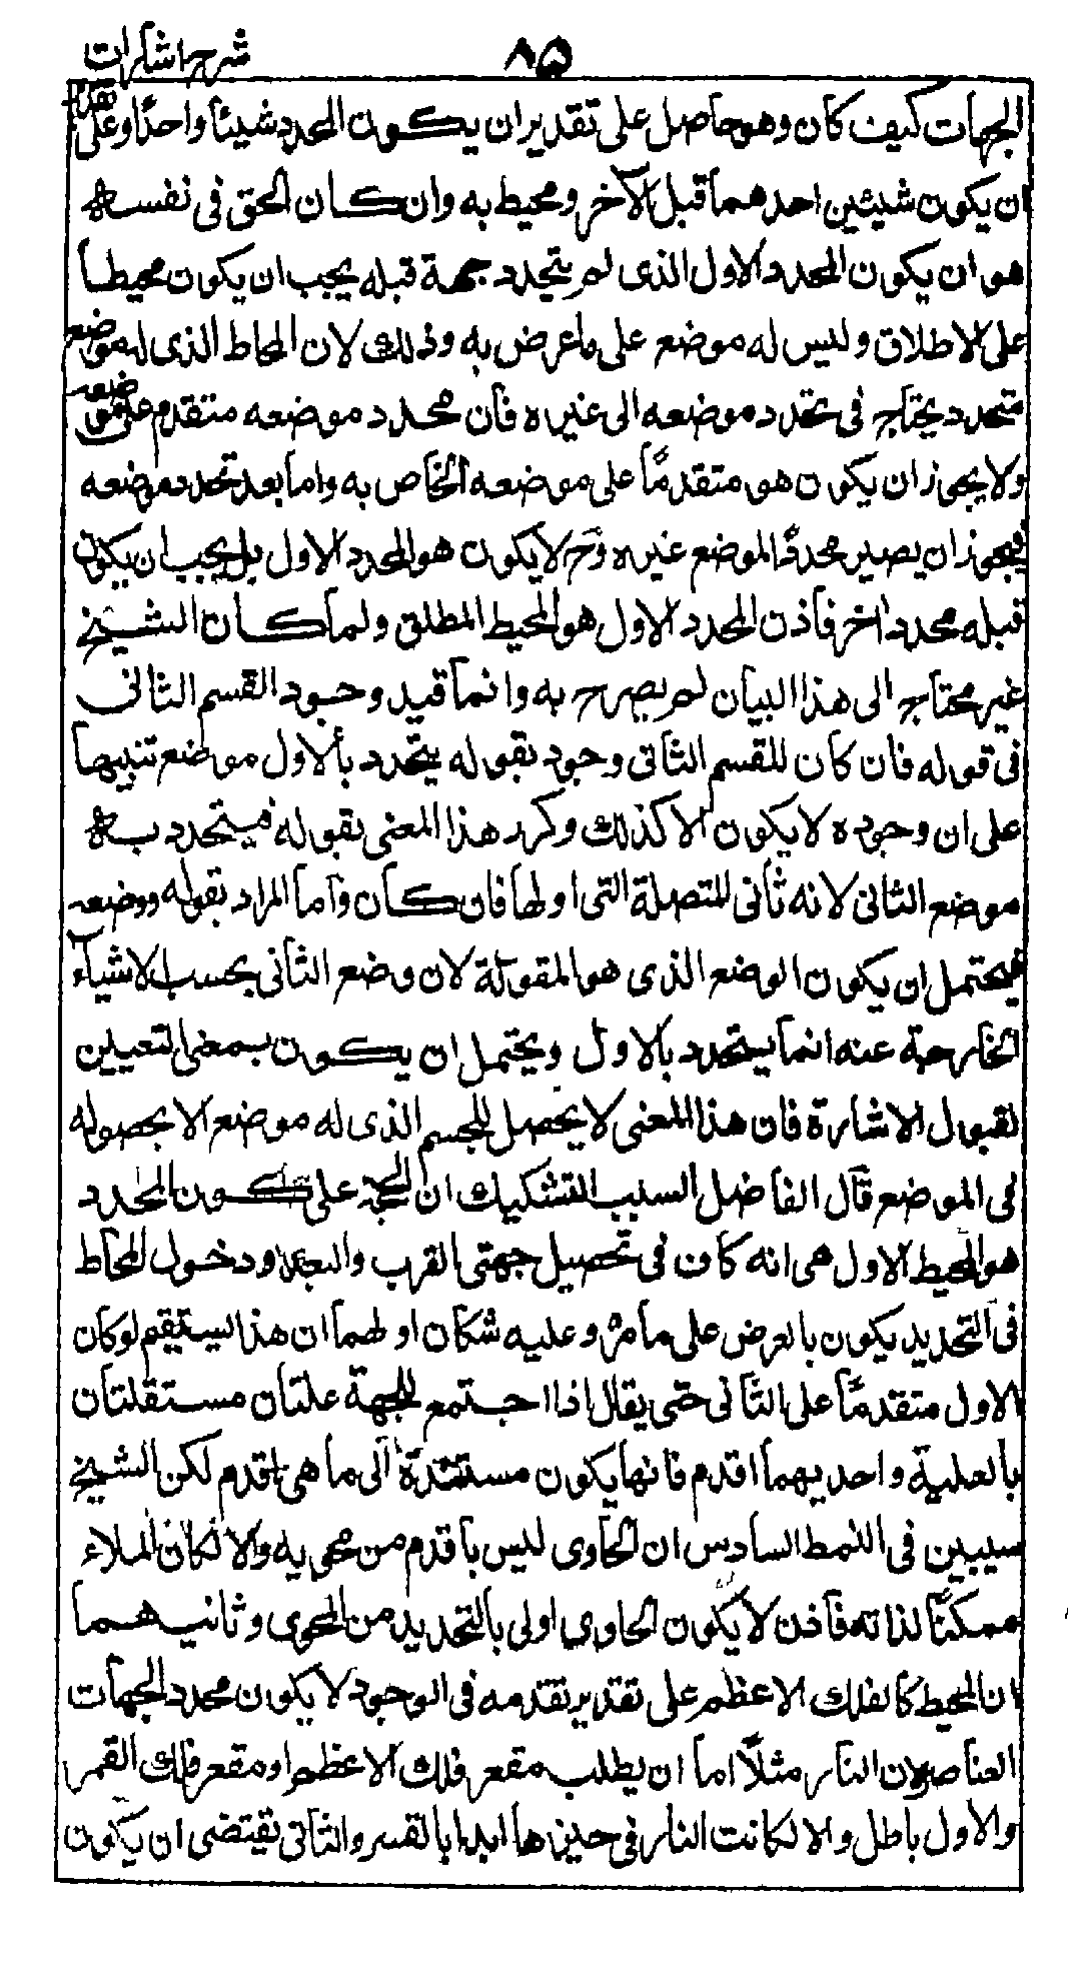 شرح اشارات
٨٥
الجهات كيف كان وهو حاصل على تقدير ان يكون المحدد شيئا واحدًا وعلى تقدير
ان يكون شيئين احدهما قبل الآخر ومحيط به وان كان الحق فى نفسه
هو ان يكون المحدد الاول الذى لم يتحدد جهة قبله يجب ان يكون محيطا
على الاطلاق وليس له موضع على ما عرض به وذلك لان المحاط الذى له موضع
متحدد يحتاج فى تحدد موضعه الى غيره فان محدد موضعه متقدم على موضعه
ولا يجوز ان يكون هو متقدمًا على موضعه الخاص به واما بعد تحدد موضعه
فيجوز ان يصير محددًا لموضع غيره وح لا يكون هو المحدد الاول بل يجب ان يكون
قبله محدد اخر فاذن المحدد الاول هو المحيط المطلق ولما كان الشيخ
غير محتاج الى هذا البيان لم يصرح به وانما قيد وجود القسم الثانى
فى قوله فان كان للقسم الثانى وجود بقوله يتحدد بالاول موضع تنبيها
على ان وجوده لا يكون الا كذلك وكرر هذا المعنى بقوله فيتحدد به
موضع الثانى لانه ثانى للمتصلة التى اولها فان كان وآما المراد بقوله ووضعه
فيحتمل ان يكون الوضع الذى هو المقولة لان وضع الثانى بحسب الاشياء
الخارجة عنه انما يتحدد بالاول ويحتمل ان يكون بمعنى التعيين
لقبول الاشارة فان هذا المعنى لا يحصل للجسم الذى له موضع الا بحصوله
فى الموضع قال الفاضل السبب التشكيك ان الحجة على كون المحدد
هو المحيط الاول هى انه كان فى تحصيل جهتى القرب والبعد ودخول المحاط
فى التحديد يكون بالعرض على ما مر وعليه شكان اولهما ان هذا يستقيم لو كان
الاول متقدمًا على الثانى حتى يقال اذا اجتمع للجهة علتان مستقلتان
بالعلية واحديهما اقدم فانها يكون مستندة الى ما هى اقدم لكن الشيخ
سيبين فى النمط السادس ان الحاوى ليس باقدم من محويه والا لكان الملاء
ممكنًا لذاته فاذن لا يكون الحاوى اولى بالتحديد من المحوى وثانيهما
ان المحيط كالفلك الاعظم على تقدير تقدمه فى الوجود لا يكون محدد الجهات
العناصر لان النار مثلًا اما ان يطلب مقعر فلك الاعظم او مقعر فلك القمر
والاول باطل والا لكانت النار فى حيزها ابدا بالقسر والثانى يقتضى ان يكون